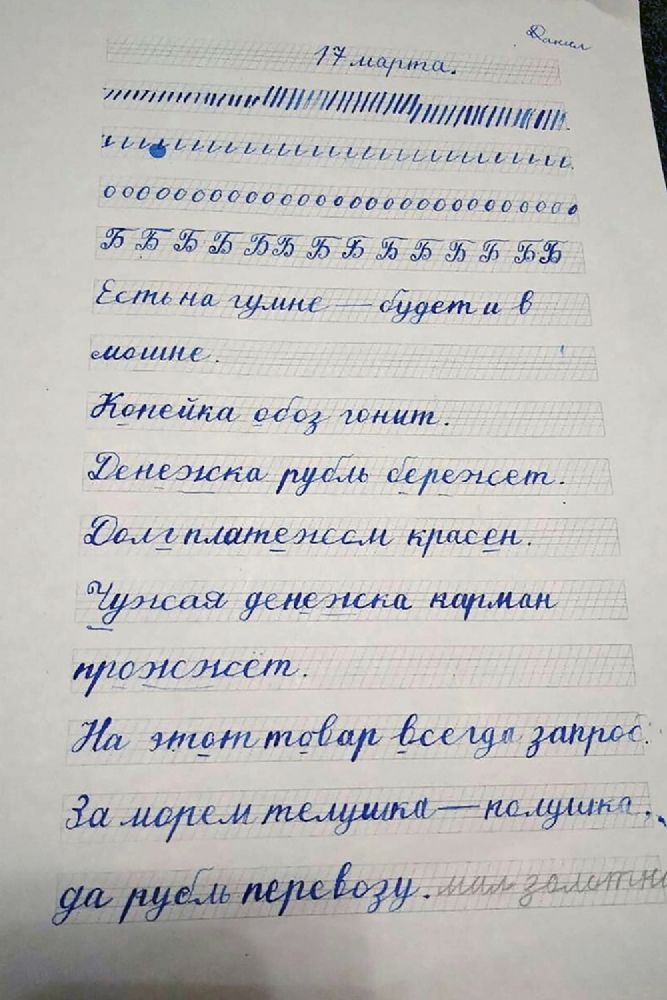 Данил
17 марта.
о о о о о о о о о о о о о о о о о о о о о о о о о о о о о
Б Б Б Б Б Б Б Б Б Б Б Б Б Б
Есть на гумне — будет и в
мошне.
Копейка обоз гонит.
Денежка рубль бережет.
Долг платежом красен.
Чужая денежка карман
прожжёт.
На этот товар всегда запрос.
За морем телушка — полушка,
да рубль перевозу. мал золотни